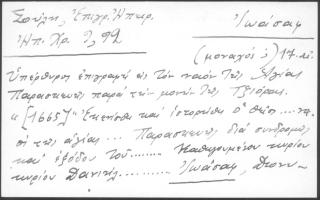 Σούλη, Ἐπιγρ. Ἠπειρ.
Ἰωάσαφ
Ἠπ. Χρ. 9, 92
(μοναχοὶ) 17 αἰ.
Ὑπέρθυρος ἐπιγραφὴ εἰς τὸν ναὸν τῆς Ἁγίας
Παρασκευῆς παρὰ τὴν μονὴν τῆς Τζιόρας.
"[1665] Ἐκτίσθη καὶ ἱστορήθη ὁ θεῖος ... να-
ὸς τῆς ἁγίας ... Παρασκευῆς διὰ συνδρομῆς
καὶ ἐξόδου τοῦ ........ Καθηγουμένου κυρίου
κυρίου Δανιὴλ ......... Ἰωάσαφ, Διονυ-